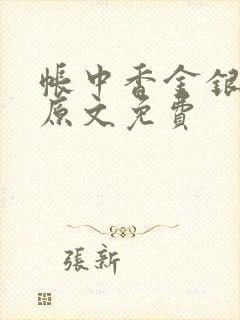 帳中香金銀
原文免費
張新